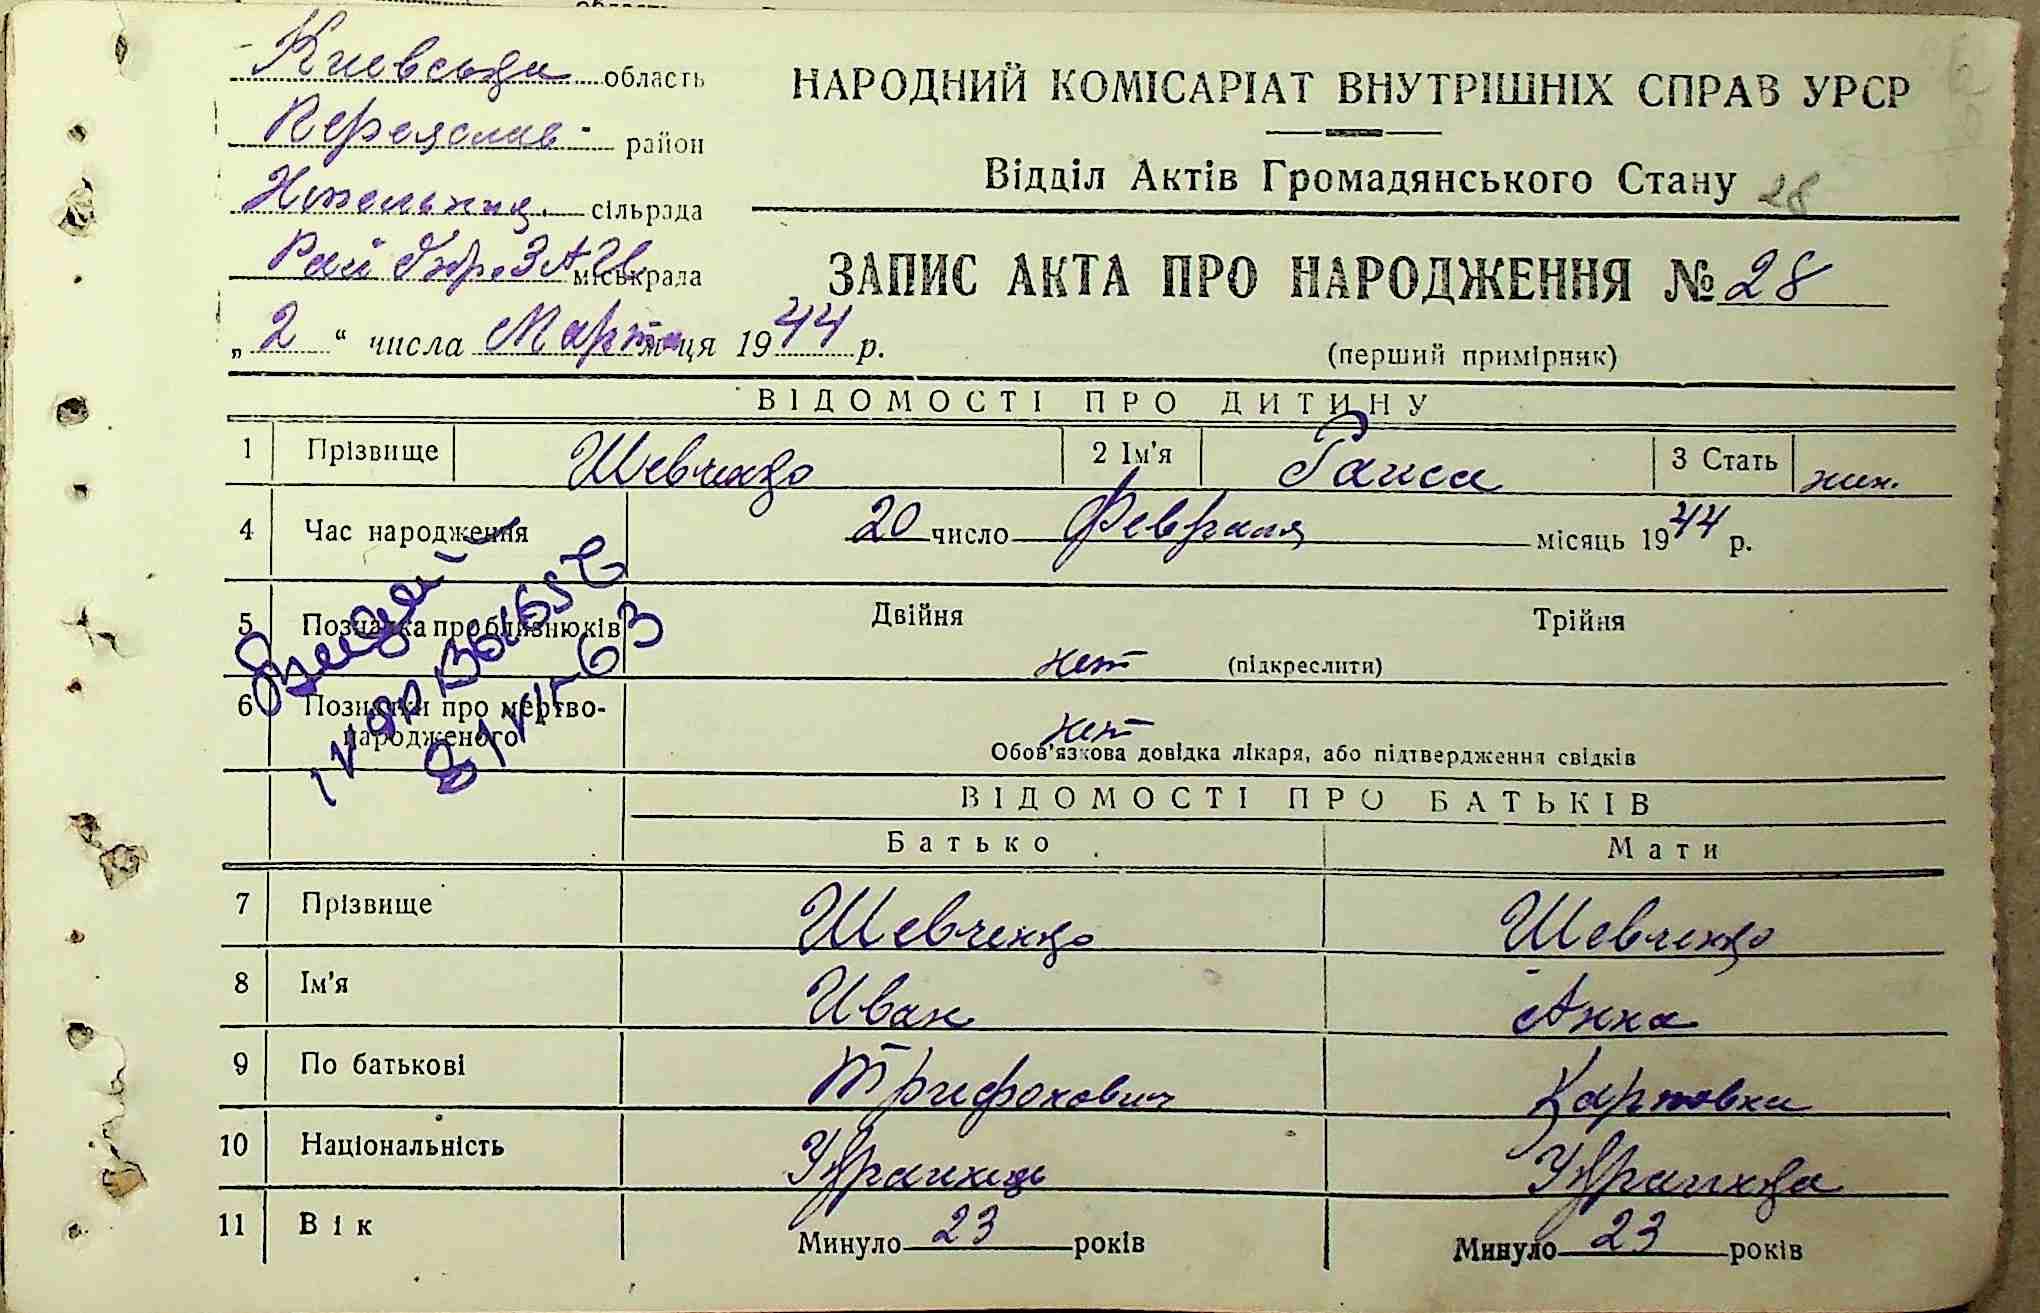 Киевська область
Переяслав- район
сільрада
Рай бюро ЗАГС міськрада
„2“ числа Марта м-ця 1944 р.
НАРОДНИЙ КОМІСАРІАТ ВНУТРІШНІХ СПРАВ УРСР
Відділ Актів Громадянського Стану 28
ЗАПИС АКТА ПРО НАРОДЖЕННЯ № 28
(перший примірник)
ВІДОМОСТІ ПРО ДИТИНУ
1 Прізвище Шевченко 2 Ім'я Раиса 3 Стать жин.
4 Час народження 20 число Февраля місяць 1944 р.
5 Познака про близнюків Двійня Трійня
нет (підкреслити)
6 Познатки про мертво-
народженого нет
Обов'язкова довідка лікаря, або підтвердження свідків
ВІДОМОСТІ ПРО БАТЬКІВ
Батько Мати
7 Прізвище Шевченко Шевченко
8 Ім'я Иван Анна
9 По батькові Трифонович Карповна
10 Національність Українець Українка
11 Вік Минуло 23 років Минуло 23 років